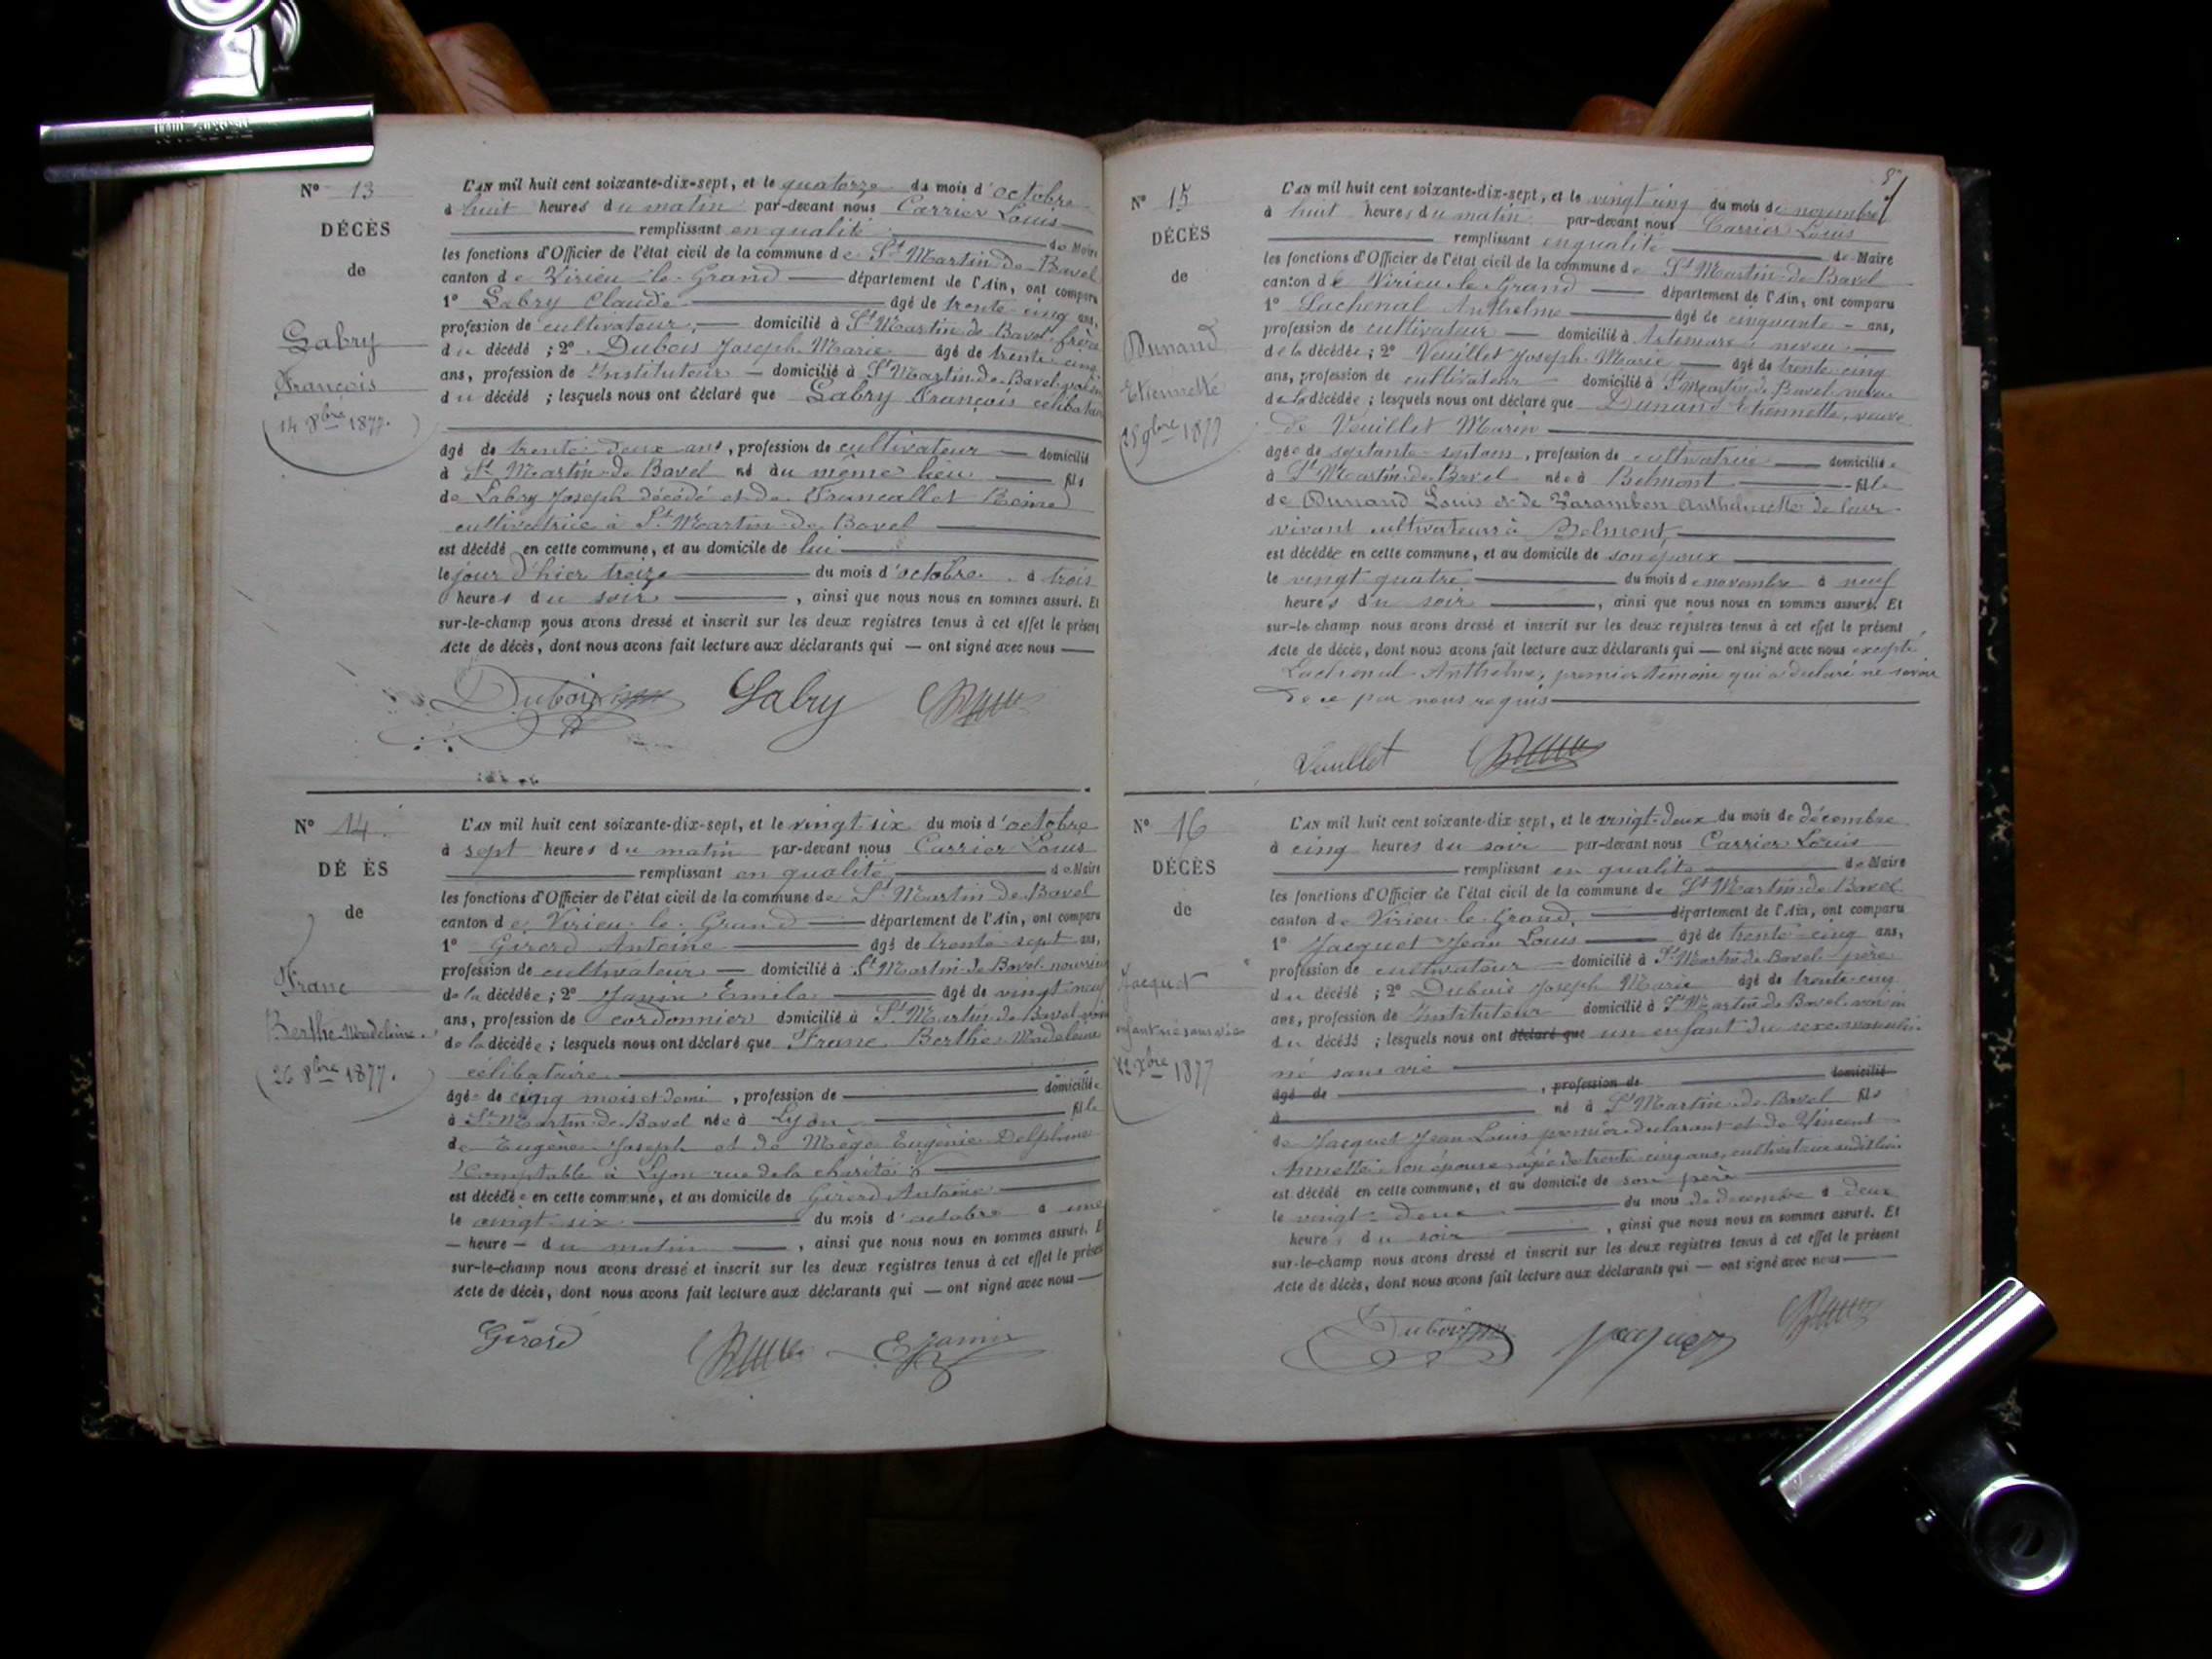 N° 13
DÉCÈS
de
Labry
François
(14 8bre 1877.)
L'AN mil huit cent soixante-dix-sept, et le quatorze du mois d'octobre
à huit heures du matin par-devant nous Carrier Louis
remplissant en qualité de Maire
les fonctions d'Officier de l'état civil de la commune de St Martin-de-Bavel
canton de Virieu-le-Grand département de l'Ain, ont comparu
1° Labry Claude âgé de trente-cinq ans,
profession de cultivateur, domicilié à St Martin de Bavel frère
du décédé ; 2° Dubois Joseph Marie âgé de trente cinq
ans, profession de Instituteur domicilié à St Martin-de-Bavel voisin
du décédé ; lesquels nous ont déclaré que Labry François célibataire
âgé de trente-deux ans, profession de cultivateur domicilié
à St Martin-de-Bavel né au même lieu fils
de Labry Joseph décédé et de Francallet Reine
cultivatrice à St Martin-de-Bavel
est décédé en cette commune, et au domicile de lui
le jour d'hier treize du mois d'octobre à trois
heures du soir, ainsi que nous nous en sommes assuré. Et
sur-le-champ nous avons dressé et inscrit sur les deux registres tenus à cet effet le présent
Acte de décès, dont nous avons fait lecture aux déclarants qui — ont signé avec nous
Dubois Labry
N° 14.
DÉ ÈS
de
Franc
Berthe-Madeleine.
(26 8bre 1877.)
L'AN mil huit cent soixante-dix-sept, et le vingt six du mois d'octobre
à sept heures du matin par-devant nous Carrier Louis
remplissant en qualité de Maire
les fonctions d'Officier de l'état civil de la commune de St Martin de Bavel
canton de Virieu-le-Grand département de l'Ain, ont comparu
1° Girerd Antoine âgé de trente-sept ans,
profession de cultivateur domicilié à St Martin-de-Bavel nourricier
de la décédée ; 2° Janin Emile âgé de vingt neuf
ans, profession de cordonnier domicilié à St Martin de Bavel voisin
de la décédée ; lesquels nous ont déclaré que Franc Berthe-Madeleine
célibataire
âgée de cinq mois et demi, profession de domiciliée
à St Martin-de-Bavel née à Lyon fille
de Eugène-Joseph et de Mège Eugénie Delphine
Comptable à Lyon rue de la charité
est décédée en cette commune, et au domicile de Girerd Antoine
le vingt-six du mois d'octobre à une
— heure — du matin, ainsi que nous nous en sommes assuré. Et
sur-le-champ nous avons dressé et inscrit sur les deux registres tenus à cet effet le présent
Acte de décès, dont nous avons fait lecture aux déclarants qui — ont signé avec nous
Girerd E Janin
N° 15
DÉCÈS
de
Dunand
Etiennette
25 9bre 1877
L'AN mil huit cent soixante-dix-sept, et le vingt cinq du mois de novembre
à huit heures du matin par-devant nous Carrier Louis
remplissant en qualité de Maire
les fonctions d'Officier de l'état civil de la commune de St Martin-de-Bavel
canton de Virieu-le-Grand département de l'Ain, ont comparu
1° Lachenal Anthelme âgé de cinquante ans,
profession de cultivateur domicilié à Artemare neveu
de la décédée ; 2° Veuillet Joseph-Marie âgé de trente-cinq
ans, profession de cultivateur domicilié à St Martin-de-Bavel neveu
de la décédée ; lesquels nous ont déclaré que Dunand Etiennette, veuve
de Veuillet Marin
âgée de septante-sept ans, profession de cultivatrice domiciliée
à St Martin-de-Bavel née à Belmont fille
de Dunand Louis et de Anthelmette de leur
vivant cultivateurs à Belmont
est décédée en cette commune, et au domicile de son époux
le vingt quatre du mois de novembre à neuf
heures du soir, ainsi que nous nous en sommes assuré. Et
sur-le-champ nous avons dressé et inscrit sur les deux registres tenus à cet effet le présent
Acte de décès, dont nous avons fait lecture aux déclarants qui — ont signé avec nous excepté
Lachenal Anthelme, premier témoin qui a déclaré ne savoir
de ce par nous requis
Veuillet
N° 16
DÉCÈS
de
Jacquet
enfant né sans vie
22 Xbre 1877
L'AN mil huit cent soixante-dix-sept, et le vingt-deux du mois de décembre
à cinq heures du soir par-devant nous Carrier Louis
remplissant en qualité de Maire
les fonctions d'Officier de l'état civil de la commune de St Martin-de-Bavel
canton de Virieu-le-Grand, département de l'Ain, ont comparu
1° Jacquet Jean Louis âgé de trente-cinq ans,
profession de cultivateur domicilié à St Martin-de-Bavel père
du décédé ; 2° Dubois Joseph Marie âgé de trente-cinq
ans, profession de Instituteur domicilié à St Martin de Bavel voisin
du décédé ; lesquels nous ont déclaré que un enfant du sexe masculin
né sans vie
âgé de , profession de domicilié
à né à St Martin-de-Bavel fils
de Jacquet Jean Louis premier déclarant et de Vincent
Annette son épouse âgée de trente-cinq ans, cultivateurs audit lieu
est décédé en cette commune, et au domicile de son père
le vingt-deux du mois de décembre à deux
heures du soir, ainsi que nous nous en sommes assuré. Et
sur-le-champ nous avons dressé et inscrit sur les deux registres tenus à cet effet le présent
Acte de décès, dont nous avons fait lecture aux déclarants qui — ont signé avec nous
Dubois Jacquet